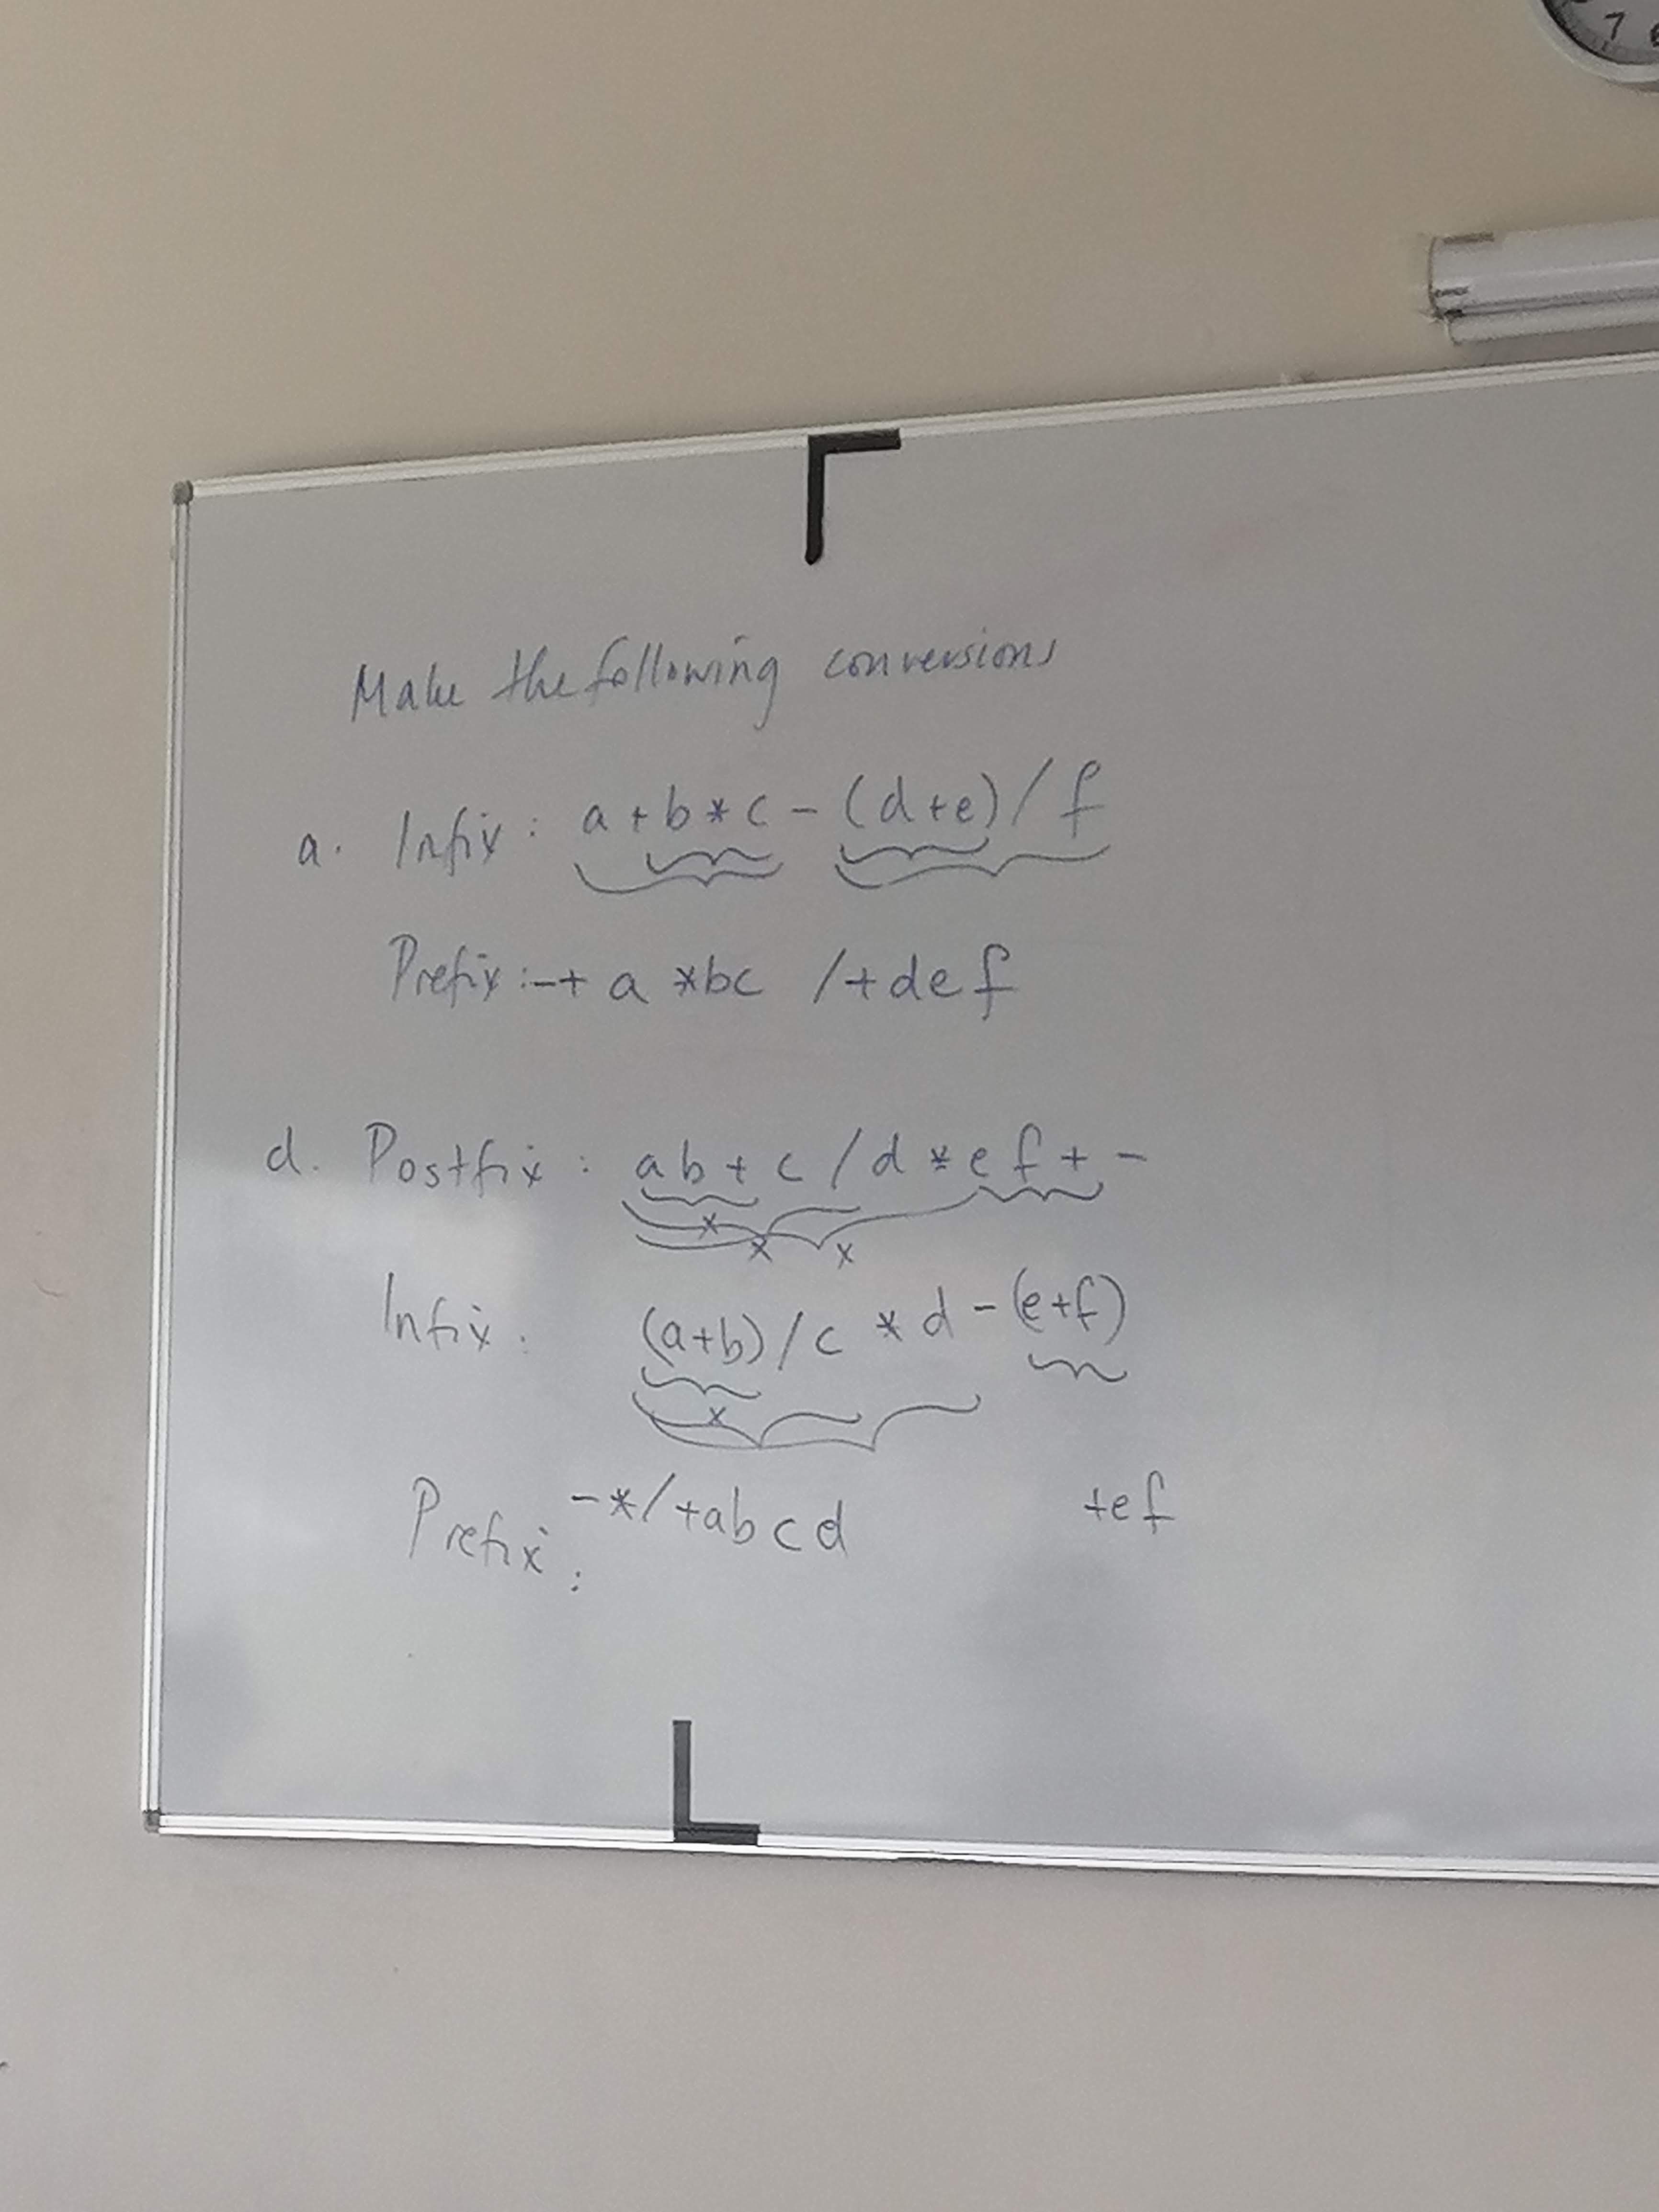 7
Make the following conversions
a. Infix: a+b*c-(d+e)/f
Prefix:-+ a *bc /+def
d. Postfix: ab+c/d*ef+-
x
x x
Infix: (a+b)/c*d-(e+f)
x
Prefix: -*/+abcd +ef